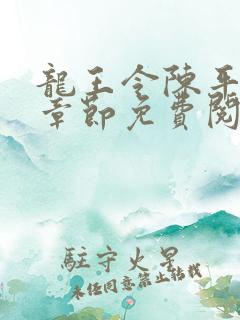 龍王令陳平
章節免費閱
駐守火星
未經同意禁止轉載